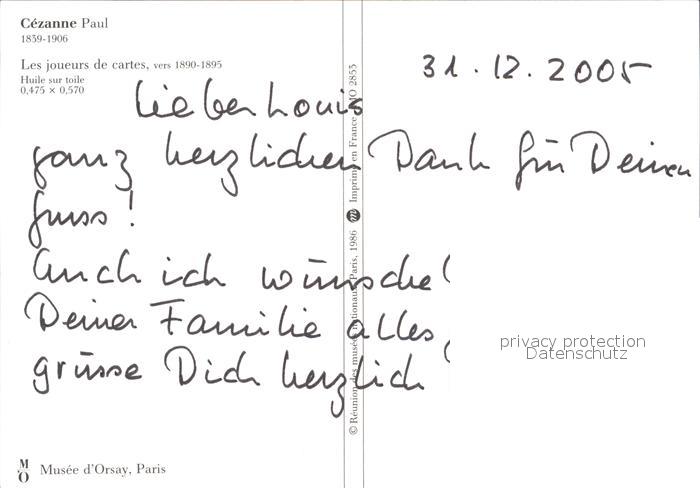 Cézanne Paul
1839-1906
Les joueurs de cartes, vers 1890-1895
Huile sur toile
0,475 × 0,570
31.12.2005
Lieber Louis
ganz herzlichen Dank für Deinen
Gruss!
Auch ich wünsche
Deiner Familie alles,
grüsse Dich herzlich
© Réunion des musées nationaux, Paris, 1986
Imprimé en France
2855
privacy protection
Datenschutz
M'O
Musée d'Orsay, Paris